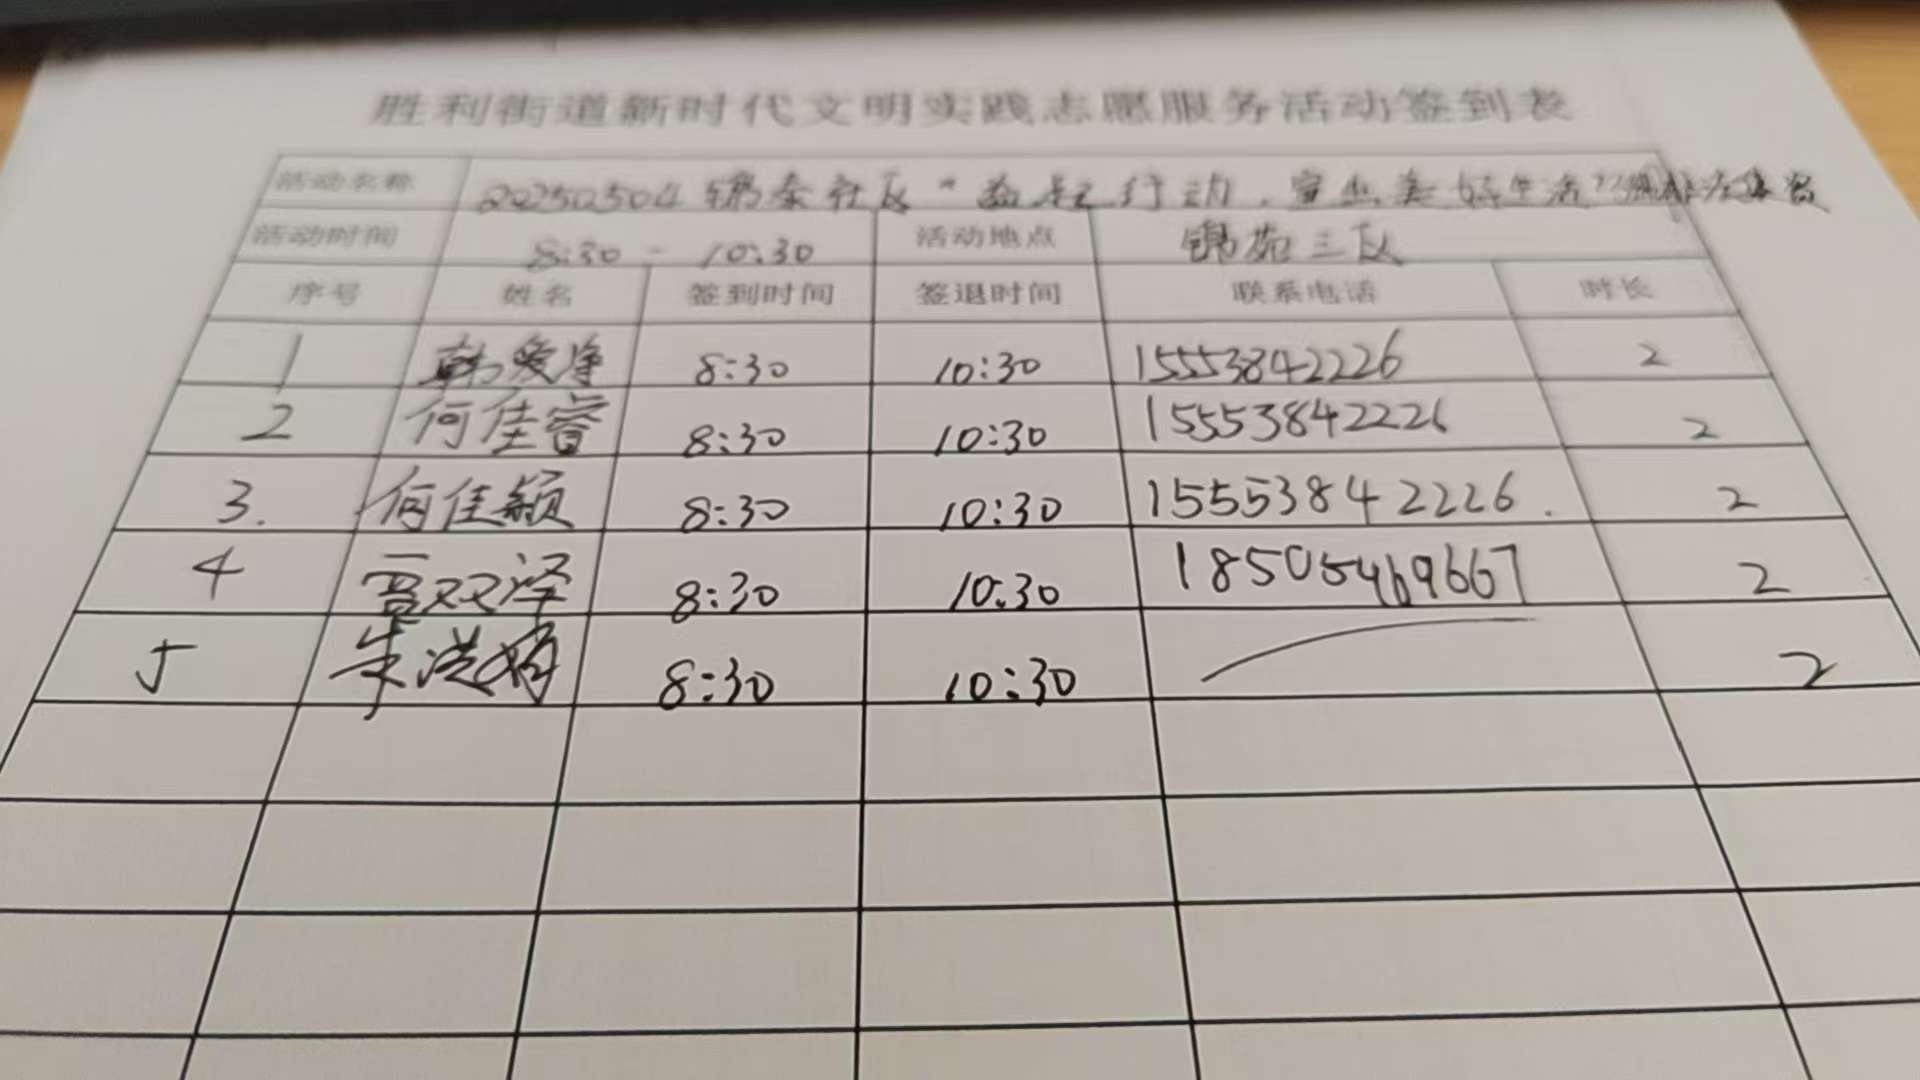 胜利街道新时代文明实践志愿服务活动签到表
活动名称 20250504锦泰社区"益起行动,宜业美好生活"
活动时间 8:30 - 10:30 活动地点 锦苑三区
序号 姓名 签到时间 签退时间 联系电话 时长
1 韩爱净 8:30 10:30 15553842226 2
2 何佳睿 8:30 10:30 15553842226 2
3. 何佳颖 8:30 10:30 15553842226. 2
4 贾双泽 8:30 10:30 18505469667 2
5 朱洪 8:30 10:30 2